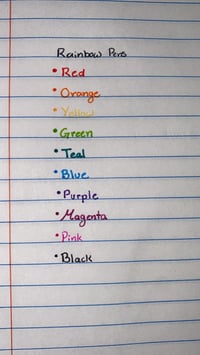 Rainbow Pens
• Red
• Orange
• Yellow
• Green
• Teal
• Blue
• Purple
• Magenta
• Pink
• Black